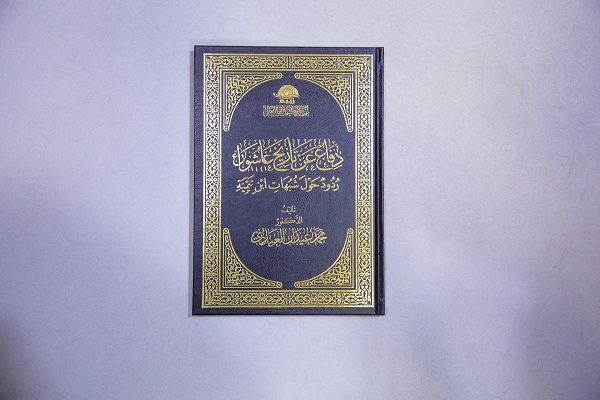 دفاع عن تاريخ عاشوراء
ردود حول شبهات ابن تيمية
تأليف
الدكتور
محمد عيدان العبادي